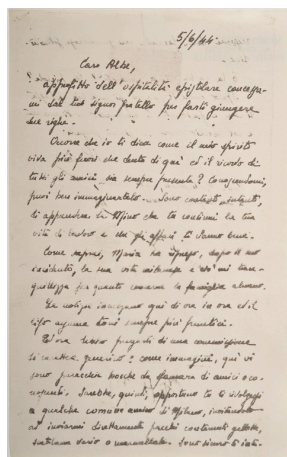 5/6/44
Caro Albe,
approfitto dell'ospitalità epistolare concessa-
mi dal tuo signor fratello per farti giungere
due righe.
Occorre che io ti dica come il mio spirito
viva più fuori che dentro di qui ed il ricordo di
tutti gli amici sia sempre presente? Conoscendomi,
puoi ben immaginartelo. Sono contento, intanto,
di apprendere da Mino che tu continui la tua
vita di lavoro e che gli affari ti vanno bene.
Come saprai, Maria ha ripreso, dopo il mo
la sua vita
quillezza per quanto concerne la famiglia almeno.
Le notizie inseguono qui di ora in ora ed il
tifo assume toni sempre più frenetici.
Ed ora devo pregarti di una commissione
di carattere generico: come immaginerai, qui vi
sono parecchie bocche da sfamare di amici e co-
noscenti. Sarebbe, quindi, opportuno tu ti rivolgessi
a qualche comune amico di Milano, invitandolo
ad inviarmi direttamente pacchi contenenti gallette,
vario o marmellate. Sono sicuro ti